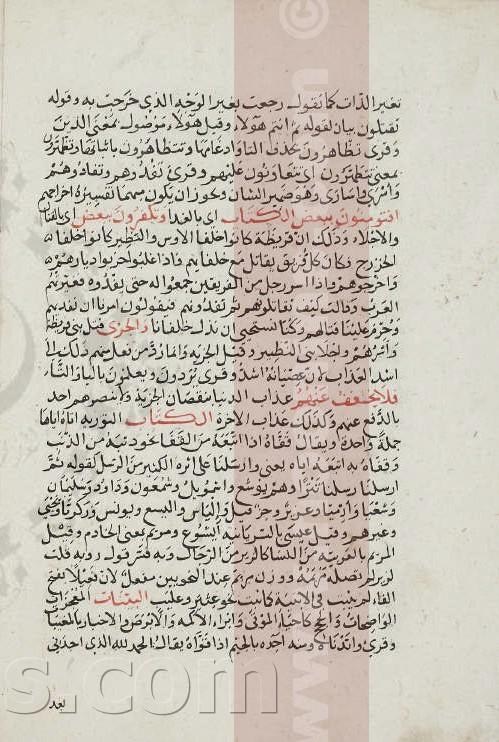 تغير الذات كما تقول رجعت بغير الوجه الذي خرجت به وقوله
تقتلون بيان لقوله ثم انتم هؤلاء وقيل هؤلاء موصول بمعنى الذين
وقرئ تظاهرون بحذف التاء وادغامها وتتظاهرون باثباتها وتظهرون
بمعنى تتظهرون اي تتعاونون عليهم وقرئ تفدوهم وتفادوهم
وأسرى وأسارى وهو ضمير الشان ويجوز ان يكون مبهما تفسيره اخراجهم
افتؤمنون ببعض الكتاب اي بالفداء وتكفرون ببعض اي بالقتال
والاجلاء وذلك ان قريظة كانوا حلفاء الاوس والنضير كانوا حلفاء
الخزرج فكان كل فريق يقاتل مع حلفائهم فاذا غلبوا خربوا ديارهم
واخرجوهم واذا اسر رجل من الفريقين جمعوا له حتى يفدوه فعيرتهم
العرب وقالت كيف تقاتلونهم ثم تفدونهم فيقولون امرنا ان نفديهم
وحرم علينا قتالهم ولكنا نستحيي ان نذل حلفاءنا والخزي قتل بني قريظة
وأسرهم واجلاء بني النضير وقيل الجزية وانما رد من فعل منهم ذلك الى
اشد العذاب لان عصيانه اشد وقرئ تردون ويعملون بالياء والتاء
فلا يخفف عنهم عذاب الدنيا بنقصان الجزية ولا ينصرهم احد
بالدفع عنهم وكذلك عذاب الاخرة الكتاب التورية اتاه اياها
جملة واحدة ويقال قفاه اذا اتبعه من القفا نحو ذنبه من الذنب
وقفاه به اتبعه اياه يعني وارسلنا على اثره الكثير من الرسل كقوله ثم
ارسلنا رسلنا تترا وهم يوشع واشمويل وشمعون وداود وسليمان
وشعيا وارميا وعزير وحزقيل والياس واليسع ويونس وزكريا ويحيى
وغيرهم وقيل عيسى بالسريانية ايشوع ومريم بمعنى الخادم وقيل
المريم بالعربية من النساء كالزير من الرجال وبه فسر قول رؤبة قلت
لزير لم تصله مريمه ووزن مريم عند النحويين مفعل لان فعيلا بفتح
الفاء لم يثبت في الابنية كما ثبت نحو عثير وعليب البينات المعجزات
الواضحات والحجج كاحياء الموتى وابراء الاكمه والابرص والاخبار بالمغيبات
وقرئ وآيدناه ومنه آجده بالجيم اذا قواه يقال الحمد لله الذي آجدني
بعد
s.com